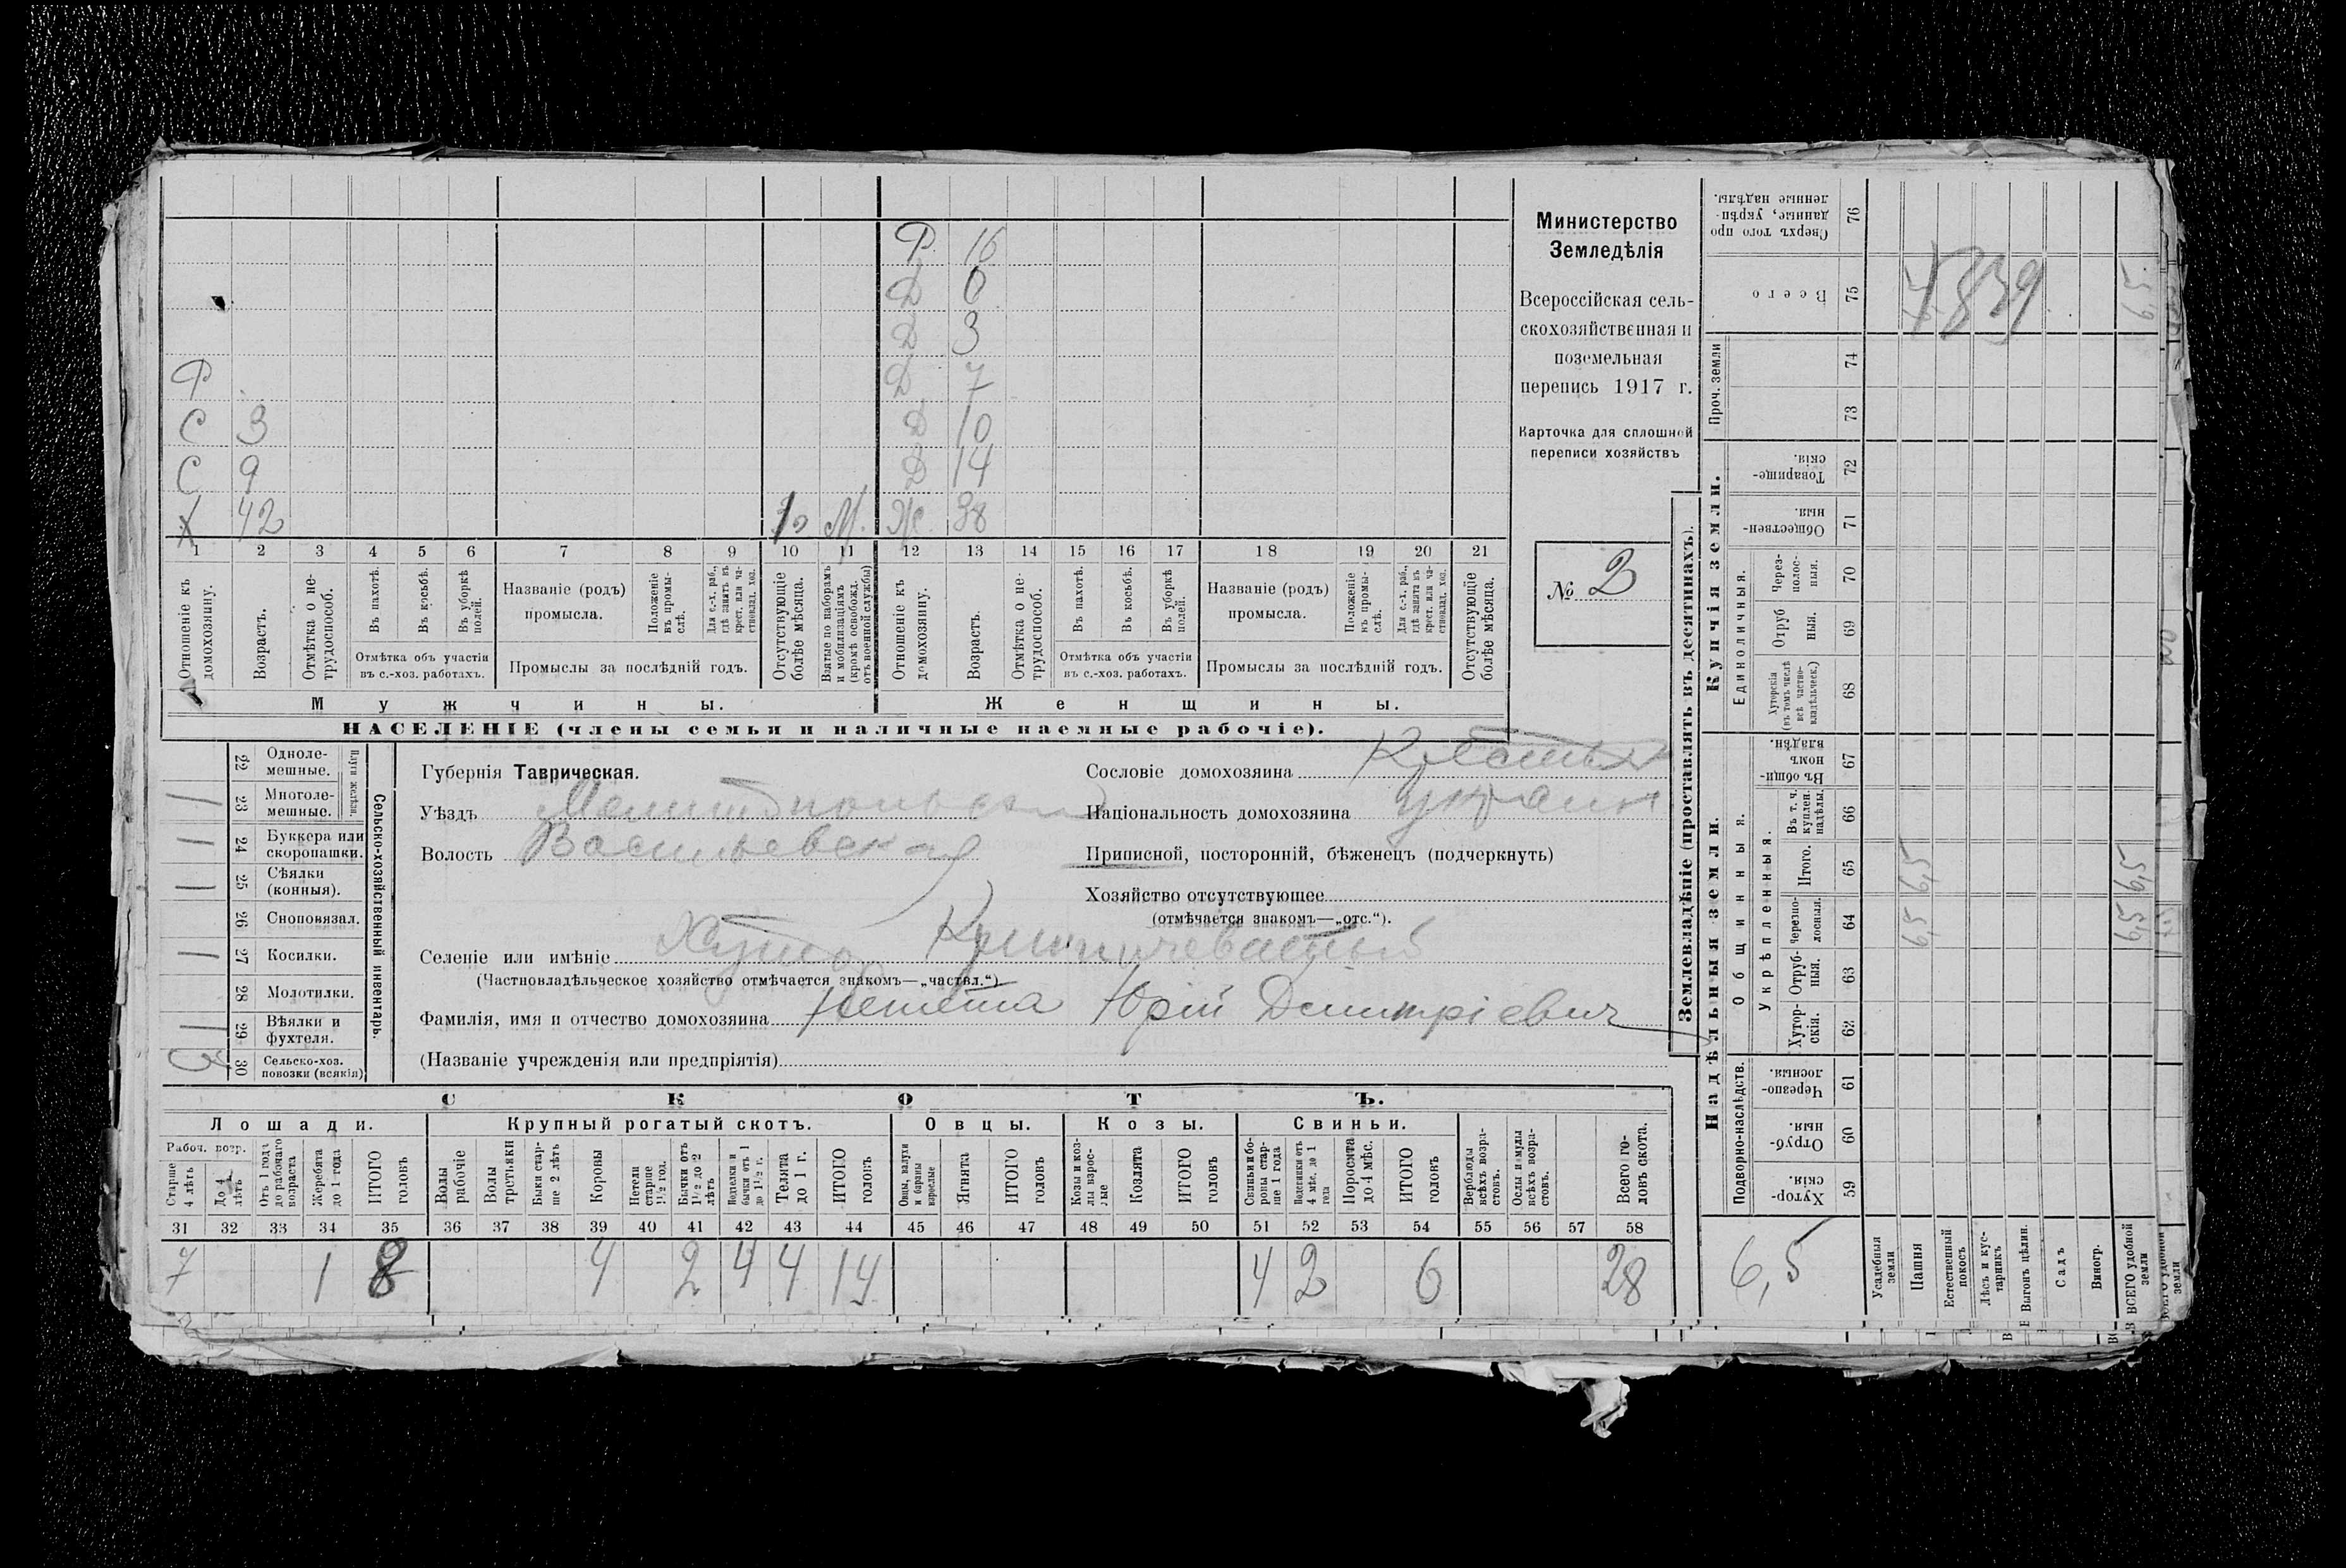 Ф 16
Д 0
Д 3
Ф Д 7
С 3 Д 10
С 9 Д 14
Х 42 М. Ж 38
1 2 3 4 5 6 7 8 9 10 11 12 13 14 15 16 17 18 19 20 21
Отношеніе къ домохозяину.
Возрастъ.
Отмѣтка о нетрудоспособ.
Въ пахотѣ.
Въ косьбѣ.
Въ уборкѣ полей.
Отмѣтка объ участіи въ с.-хоз. работахъ.
Названіе (родъ) промысла.
Положеніе въ промыслѣ.
Для с.-х. раб., гдѣ занятъ въ крест. или частновлад. хоз.
Промыслы за послѣдній годъ.
Отсутствующіе болѣе мѣсяца.
Взятые по наборамъ и мобилизаціямъ (кромѣ освобожд. отъ военной службы)
Отношеніе къ домохозяину.
Возрастъ.
Отмѣтка о нетрудоспособ.
Въ пахотѣ.
Въ косьбѣ.
Въ уборкѣ полей.
Отмѣтка объ участіи въ с.-хоз. работахъ.
Названіе (родъ) промысла.
Положеніе въ промыслѣ.
Для с.-х. раб., гдѣ занята въ крест. или частновлад. хоз.
Промыслы за послѣдній годъ.
Отсутствующіе болѣе мѣсяца.
Мужчины. Женщины.
НАСЕЛЕНІЕ (члены семьи и наличные наемные рабочіе).
Министерство
Земледѣлія
Всероссійская сель-
скохозяйственная и
поземельная
перепись 1917 г.
Карточка для сплошной
переписи хозяйствъ
№ 2
22 Одноле-мешные.
23 Многоле-мешные.
Плуги желѣзн.
24 Буккера или скоропашки.
25 Сѣялки (конныя).
26 Сноповязал.
27 Косилки.
28 Молотилки.
29 Вѣялки и фухтеля.
30 Сельско-хоз. повозки (всякія)
Сельско-хозяйственный инвентарь.
Губернія Таврическая.
Уѣздъ Мелитопольскій
Волость Васильевская
Сословіе домохозяина
Національность домохозяина украин
Приписной, посторонній, бѣженецъ (подчеркнуть)
Хозяйство отсутствующее
(отмѣчается знакомъ—„отс.“).
Селеніе или имѣніе Хуторъ
(Частновладѣльческое хозяйство отмѣчается знакомъ—„частвл.“)
Фамилія, имя и отчество домохозяина Юрій Димитріевич
(Названіе учрежденія или предпріятія)
СКОТЪ.
Лошади. Крупный рогатый скотъ. Овцы. Козы. Свиньи.
Рабоч. возр.
Старше 4 лѣтъ
До 4 лѣтъ
Отъ 1 года до рабочаго возраста
Жеребята до 1 года
ИТОГО головъ
Волы рабочіе
Волы третьяки
Быки старше 2 лѣтъ
Коровы
Нетели старше 1½ год.
Бычки отъ 1½ до 2 лѣтъ
Телята до 1 г.
ИТОГО головъ
Овцы, валухи и бараны взрослые
Ягнята
ИТОГО головъ
Козы и козлы взрослые
Козлята
ИТОГО головъ
Свиньи и боровы старше 1 года
Подсвинки отъ 4 мѣс. до 1 года
Поросята до 4 мѣс.
ИТОГО головъ
Верблюды всѣхъ возрастовъ.
Ослы и мулы всѣхъ возрастовъ.
Всего головъ скота.
31 32 33 34 35 36 37 38 39 40 41 42 43 44 45 46 47 48 49 50 51 52 53 54 55 56 57 58
7 1 8 4 2 4 4 14 4 2 6 28
Землевладѣніе (проставлять въ десятинахъ).
Надѣльныя земли.
Купчія земли.
Проч. земли
Подворно-наслѣдств.
Общинныя.
Укрѣпленныя.
Единоличныя.
Сверхъ того проданные, укрѣпленные надѣлы. 76
Всего 75
74
73
Товарищескія. 72
Общественныя. 71
Черезполосныя. 70
Отрубныя. 69
Хуторскія (въ томъ числѣ всѣ частновладѣльческ.) 68
Въ общинномъ владѣн. 67
Въ т. ч. куплен. надѣлы. 66
Итого. 65
Черезполосныя. 64
Отрубныя. 63
Хуторскія. 62
Черезполосныя. 61
Отрубныя. 60
Хуторскія. 59
6,5
6,5
6,5
Усадебныя земли
Пашня
Естественный покосъ
Лѣсъ и кустарникъ
Выгонъ цѣлин.
Садъ
Виногр.
ВСЕГО удобной земли